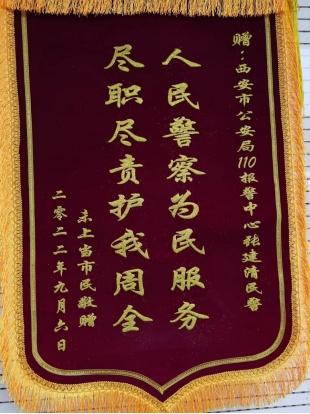 赠：西安市公安局110报警中心张建清民警
人民警察为民服务
尽职尽责护我周全
未上当市民敬赠
二零二二年九月六日